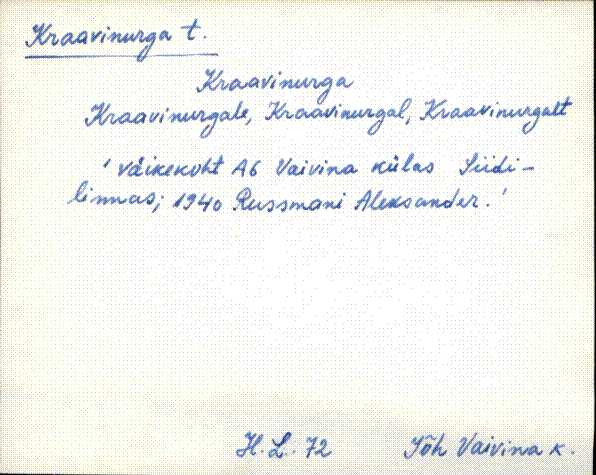 Kraavinurga t.
Kraavinurga
Kraavinurgale, Kraavinurgal, Kraavinurgalt
' väikekoht A6 Vaivina külas Siidi-
linnas; 1940 Russmani Aleksander.'
H. L. 72 Jõh Vaivina k.